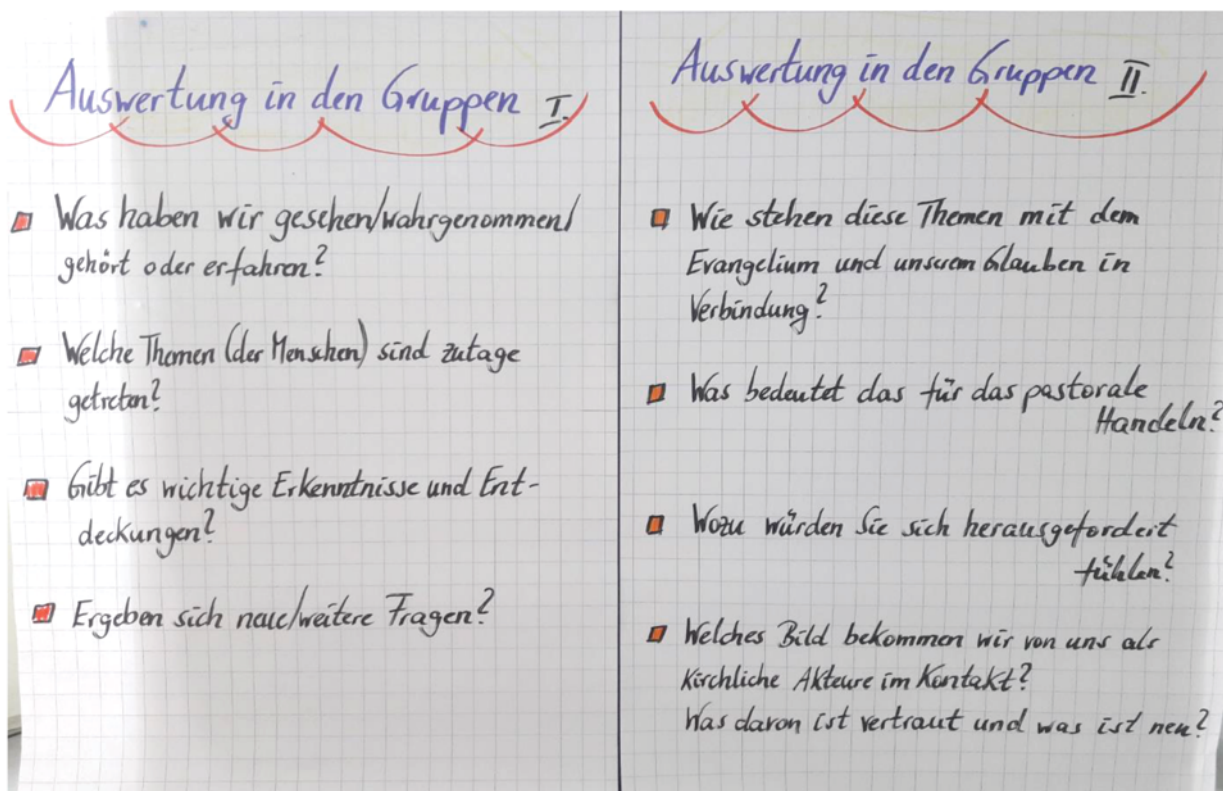 Auswertung in den Gruppen I.
Was haben wir gesehen/wahrgenommen/
gehört oder erfahren?
Welche Themen (der Menschen) sind zutage
getreten?
Gibt es wichtige Erkenntnisse und Ent-
deckungen?
Ergeben sich neue/weitere Fragen?
Auswertung in den Gruppen II.
Wie stehen diese Themen mit dem
Evangelium und unserem Glauben in
Verbindung?
Was bedeutet das für das pastorale
Handeln?
Wozu würden Sie sich herausgefordert
fühlen?
Welches Bild bekommen wir von uns als
kirchliche Akteure im Kontakt?
Was davon ist vertraut und was ist neu?